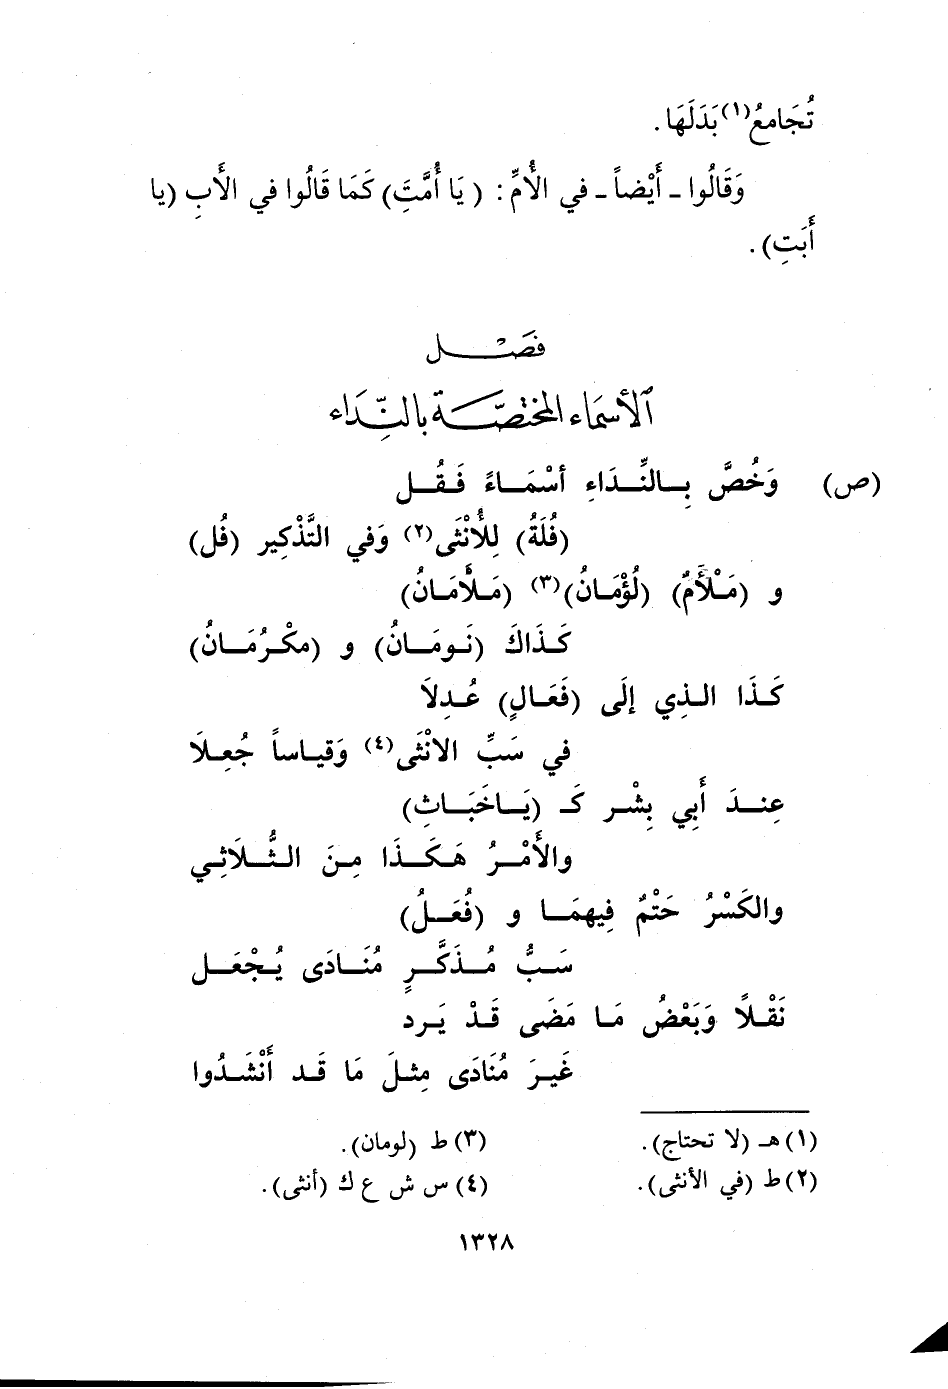 تُجَامعُ(١) بَدَلَهَا.
وَقَالُوا ـ أَيْضاً ـ في الأُمِّ: ( يَا أُمَّتَِ) كَمَا قَالُوا في الأَبِ (يا
أَبَتِ).
فصَـْـل
ٱلأسمَاء المختصّـَة بالنِّـدَاء
(ص) وَخُصَّ بِـالنِّـدَاءِ أسْمَـاءً فَـقُـل
(فُلَةُ) لِلأُنْثَى(٢) وَفي التَّذْكِير (فُل)
و (مَـْلأَمٌ) (لُؤْمَـانُ)(٣) (مَـلأَمَانُ)
كَـذَاكَ (نَـومَـانُ) و (مكْـرُمَـانُ)
كَـذَا الـذِي إلَى (فَعَـالٍ) عُـدِلاَ
في سَبِّ الانْثَى(٤) وَقيـاساً جُعِـلاَ
عِنـدَ أَبِي بِشْـر كَـ (يَـاخَبَـاثِ)
والأَمْـرُ هَـكَـذَا مِـنَ الـثُّـلاَثِـي
والكَسْرُ حَتْمٌ فِيهمَـا و (فُعَـلُ)
سَـبُّ مُـذَكَّـرٍ مُنَـادَى يُـجْعَـل
نَقْـلاً وَبَعْضُ مَـا مَضَى قَـدْ يَـرد
غَيـرَ مُنَادَى مِثـلَ مَا قَـد أَنْشَـدُوا
(١) هـ (لا تحتاج).
(٢) ط (في الأنثى).
(٣) ط (لومان).
(٤) س ش ع ك (أنثى).
١٣٢٨